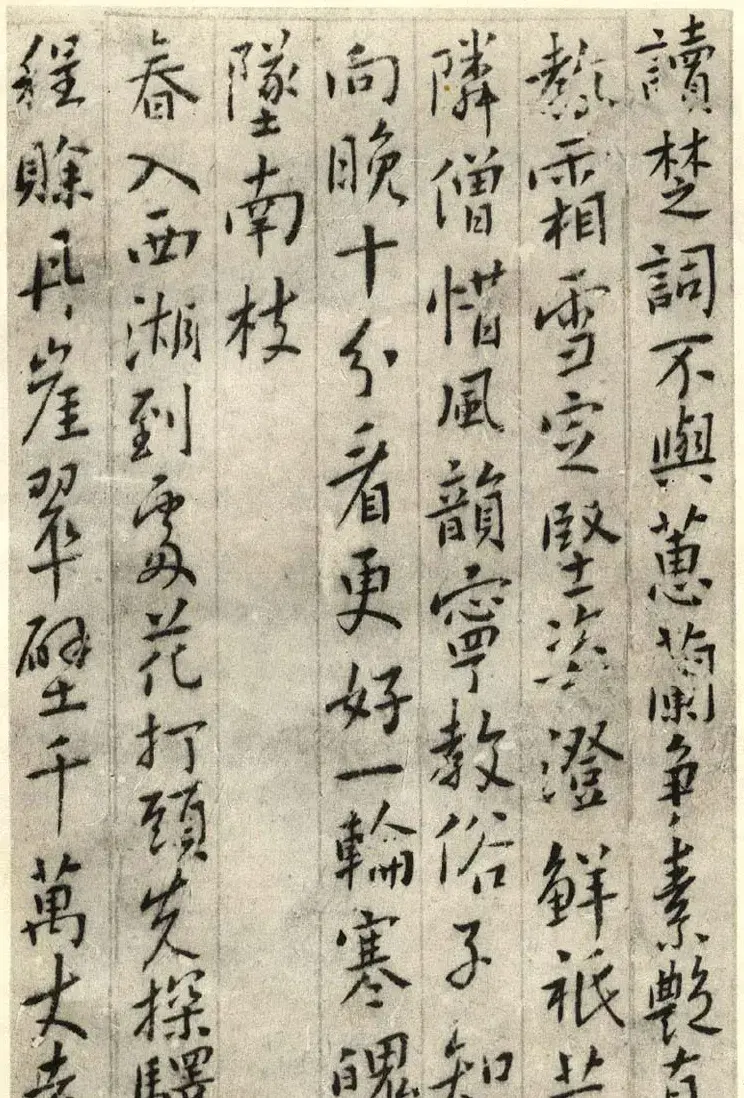 讀楚詞不與蕙蘭爭素艷直
熬霜雪定堅姿澄鮮祇共
隣僧惜風韻寧教俗子知
向晚十分看更好一輪寒魄
墜南枝
春入西湖到處花打頭先探驛
程賖丹崖翠壁千萬丈